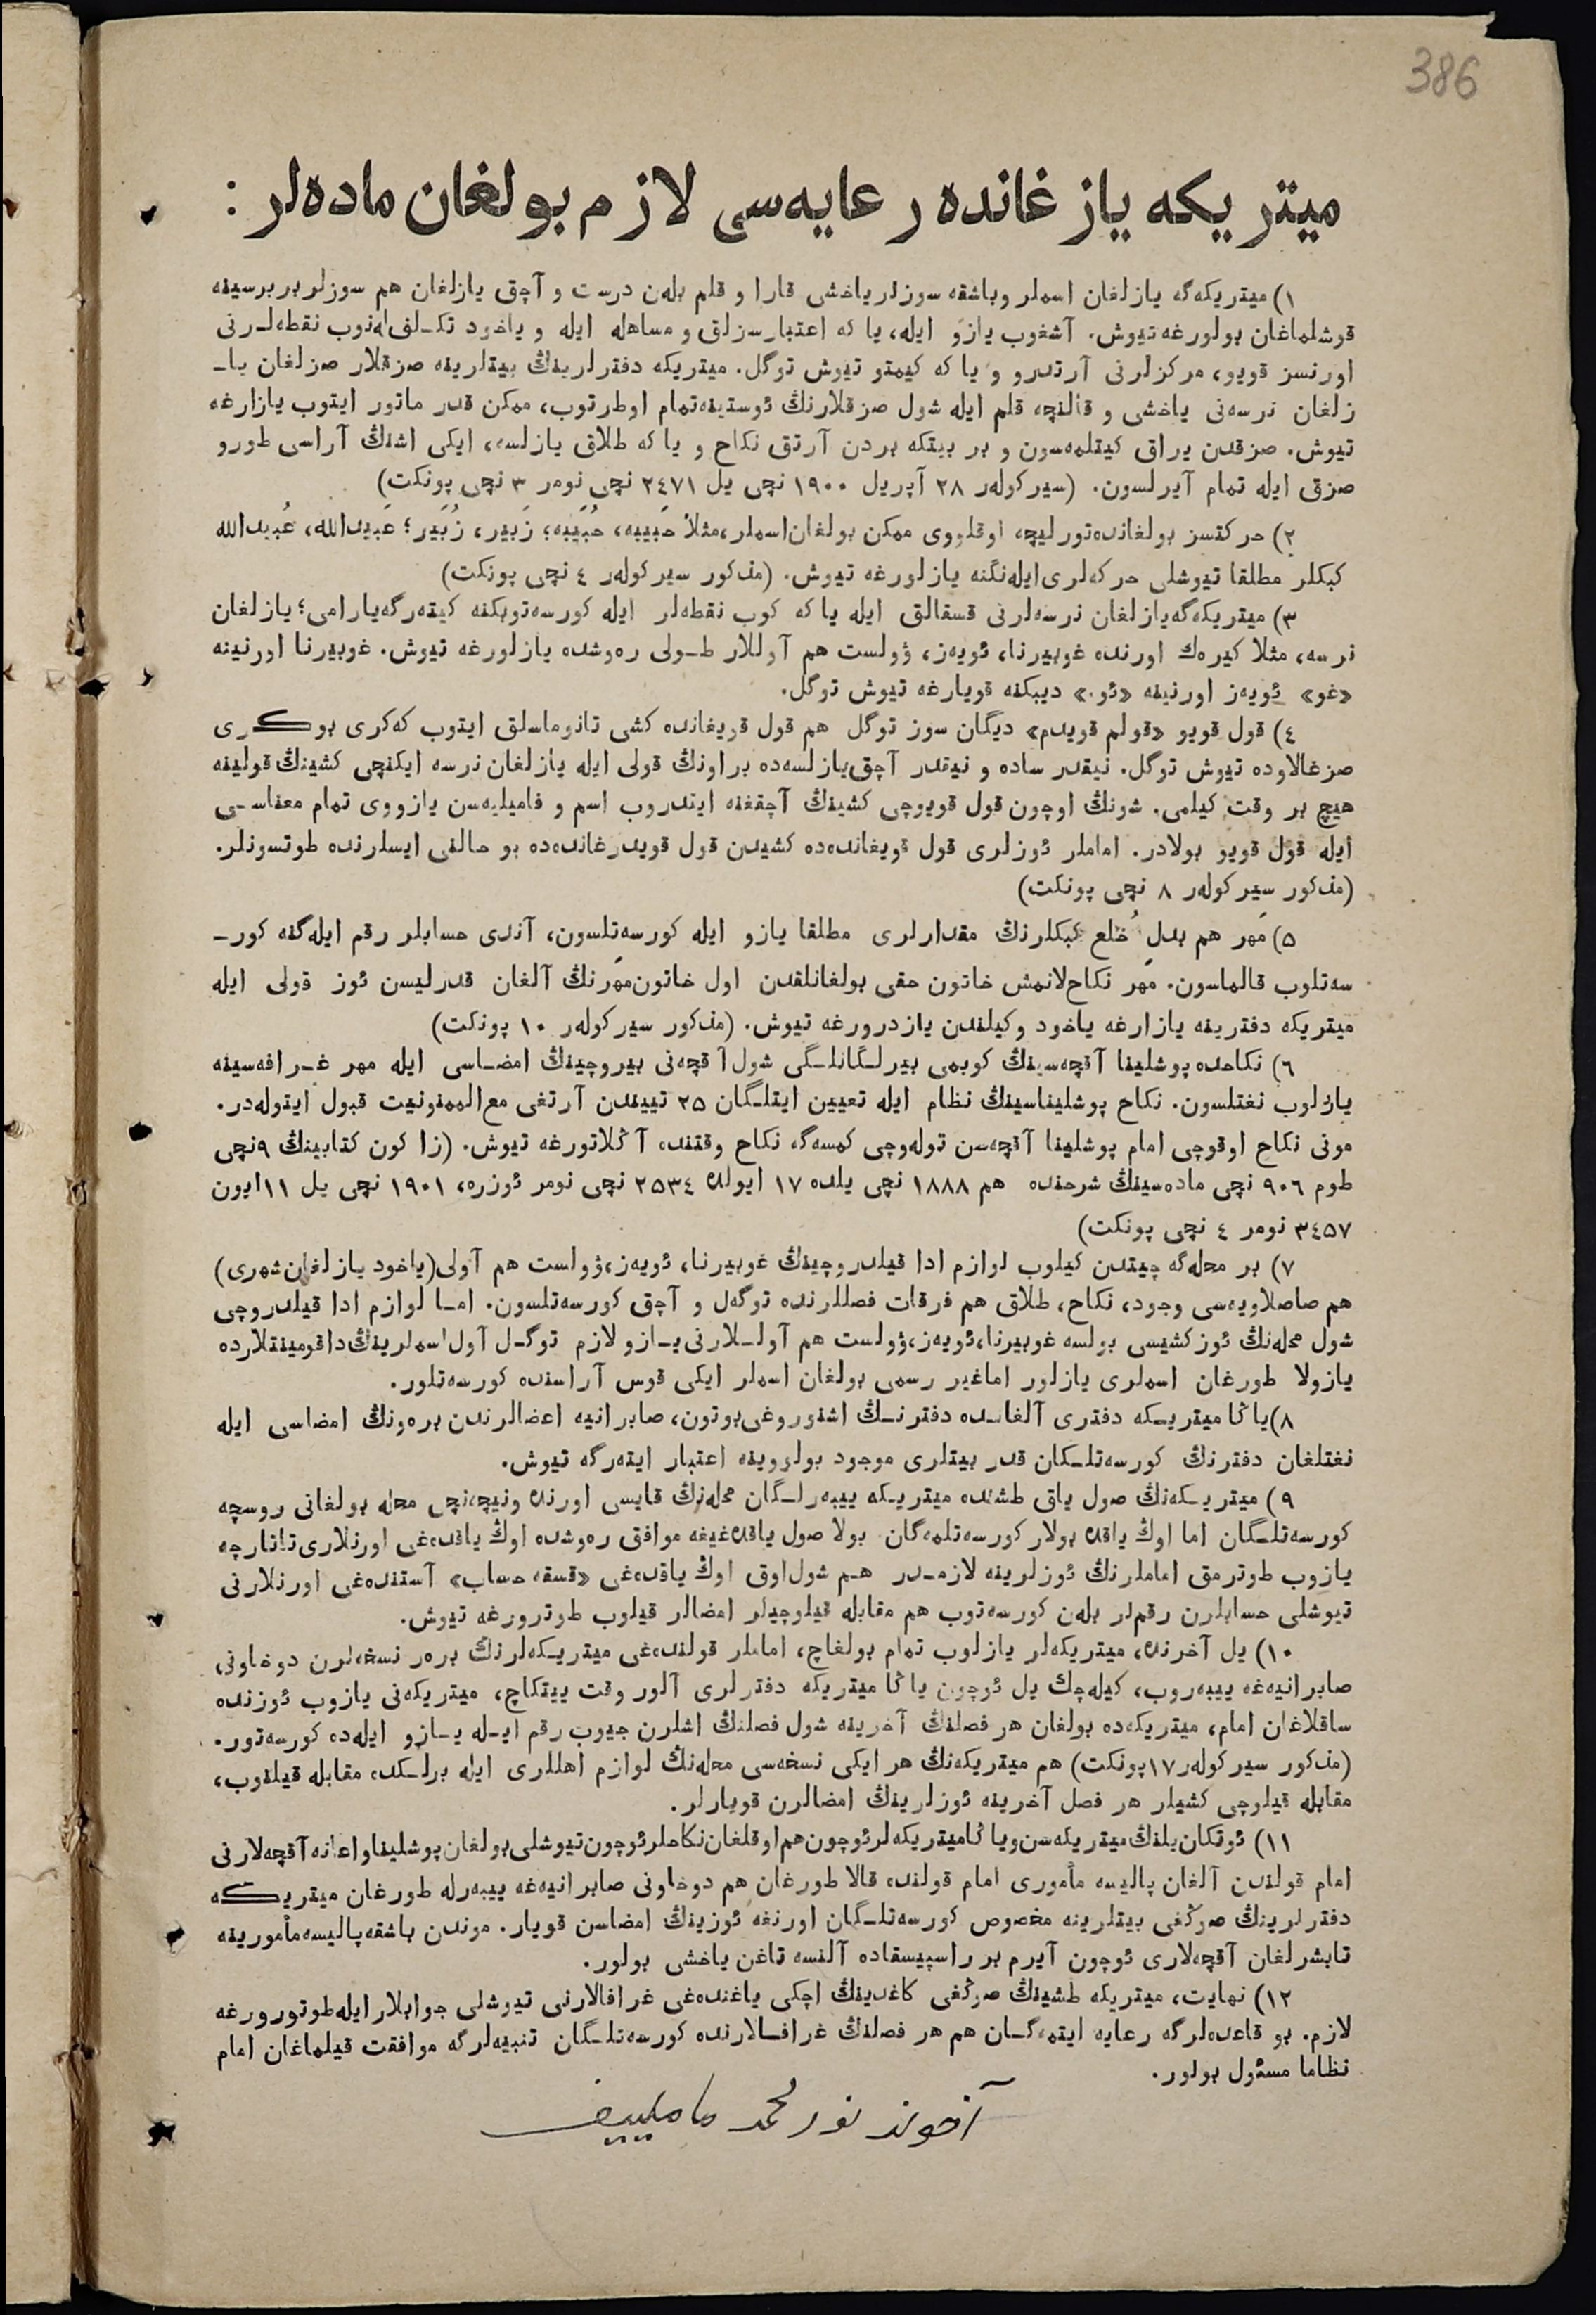 386
ميتريكه يازغانده رعايه‌سى لازم بولغان ماده‌لر :
١) ميتريكه‌گه يازلغان اسملر وباشقه سوزلر ياخشى قارا و قلم بله‌ن درست و آچق يازلغان هم سوزلر بربرسينه
قوشلماغان بولورغه تيوش. آشغوب يازو ايله، يا كه اعتبارسزلق و مساهله ايله و ياخود تكـلف‌له‌نوب نقطه‌لـرنى
اورنسز قويو، مركزلرنى آرتدرو و يا كه كيمتو تيوش توگل. ميتريكه دفترلرينڭ بيتلرينه صزقلار صزلغان يا‍ـ
زلغان نرسه‌نى ياخشى و قالنچه قلم ايله شول صزقلارنڭ ئوستينه تمام اوطرتوب، ممكن قدر ماتور ايتوب يازارغه
تيوش. صزقدن يراق كيتلمه‌سون و بر بيتكه بردن آرتق نكاح و يا كه طلاق يازلسه، ايكى اشنڭ آراسى طورو
صزق ايله تمام آيرلسون. (سيركوله‌ر ٢٨ آپريل ١٩٠٠ نچى يل ٢٤٧١ نچى نومر ٣ نچى پونكت)
٢) حركتسز بولغانده تورليچه اوقلووى ممكن بولغان اسملر، مثلا حَبيبه، حُبَيبه؛ زَبير، زُبَير؛ عَبيدالله، عُبيدالله
كبكلر مطلقا تيوشلى حركه‌لرى ايله‌نگنه يازلورغه تيوش. (مذكور سيركوله‌ر ٤ نچى پونكت)
٣) ميتريكه‌گه يازلغان نرسه‌لرنى قسقالق ايله يا كه كوب نقطه‌لر ايله كورسه‌توبكنه كيته‌رگه يارامى؛ يازلغان
نرسه، مثلا كيره‌ك اورنده غوبيرنا، ئويه‌ز، ۋولست هم آوللار طـولى ره‌وشده يازلورغه تيوش. غوبيرنا اورنينه
«غو» ئويه‌ز اورنينه «ئو.» ديبكنه قويارغه تيوش توگل.
٤) قول قويو «قولم قويدم» ديگان سوز توگل هم قول قويغانده كشى تانوماسلق ايتوب كه‌كرى بوكـرى
صزغالاوده تيوش توگل. نيقدر ساده و نيقدر آچق يازلسه‌ده براونڭ قولى ايله يازلغان نرسه ايكنچى كشينڭ قولينه
هيچ بر وقت كيلمى. شونڭ اوچون قول قويوچى كشينڭ آچقغنه ايتدروب اسم و فاميليه‌سن يازووى تمام معناسـى
ايله قول قويو بولادر. اماملر ئوزلرى قول قويغانده‌ده كشيدن قول قويدرغانده‌ده بو حالنى ايسلرنده طوتسونلر.
(مذكور سيركوله‌ر ٨ نچى پونكت)
٥) مَهر هم بدلِ خُلع كبكلرنڭ مقدارلرى مطلقا يازو ايله كورسه‌تلسون، آندى حسابلر رقم ايله‌گنه كورـ
سه‌تلوب قالماسون. مَهر نكاح‌لانمش خاتون حقى بولغانلقدن اول خاتون مَهرنڭ آلغان قدرليسن ئوز قولى ايله
ميتريكه دفترينه يازارغه ياخود وكيلندن يازدرورغه تيوش. (مذكور سيركوله‌ر ١٠ پونكت)
٦) نكاحده پوشلينا آقچه‌سينڭ كوبمى بيرلـگانلـگى شول آقچه‌نى بيروچينڭ امضـاسى ايله مهر غـرافه‌سينه
يازلوب نغتلسون. نكاح پوشليناسينڭ نظام ايله تعيين ايتلـگان ٢٥ تييندن آرتغى مع‌الممنونيت قبول ايتوله‌در.
مونى نكاح اوقوچى امام پوشلينا آقچه‌سن توله‌وچى كمسه‌گه نكاح وقتنده آڭلاتورغه تيوش. (زاكون كتابينڭ ٩ نچى
طوم ٩٠٦ نچى ماده‌سينڭ شرحنده هم ١٨٨٨ نچى يلده ١٧ ايولده ٢٥٣٤ نچى نومر ئوزره، ١٩٠١ نچى يل ١١ ايون
٣٤٥٧ نومر ٤ نچى پونكت)
٧) بر محله‌گه چيتدن كيلوب لوازم ادا قيلدروچينڭ غوبيرنا، ئويه‌ز، ۋولست هم آولى (ياخود يازلغان شهرى)
هم صاصلاويه‌سى وجود، نكاح، طلاق هم فرقات فصللرنده توگه‌ل و آچق كورسه‌تلسون. امـا لوازم ادا قيلدروچى
شول محله‌نڭ ئوز كشيسى بولسه غوبيرنا، ئويه‌ز، ۋولست هم آولـلارنى يـازو لازم توگـل آول اسملرينڭ داقومينتلارده
يازولا طورغان اسملرى يازلور اما غير رسمى بولغان اسملر ايكى قوس آراسنده كورسه‌تلور.
٨) ياڭا ميتريـكه دفترى آلغانـده دفترنـڭ اشنوروغى بوتون، صابرانيه اعضالرندن بره‌ونڭ امضاسى ايله
نغتلغان دفترنڭ كورسه‌تلـكان قدر بيتلرى موجود بولووينه اعتبار ايته‌رگه تيوش.
٩) ميتريـكه‌نڭ صول ياق طشنده ميتريـكه ييبه‌رلـگان محله‌نڭ قايسى اورنده ونيچه‌نچى محله بولغانى روسچه
كورسه‌تلـگان اما اوڭ ياقده بولار كورسه‌تلمه‌گان. بولا صول ياقده‌غيغه موافق ره‌وشده اوڭ ياقده‌غى اورنلارى تاتارچه
يازوب طوترمق اماملرنڭ ئوزلرينه لازمـدر هـم شول اوق اوڭ ياقده‌غى «قسقه حساب» آستنده‌غى اورنلارنى
تيوشلى حسابلرن رقم‌لر بله‌ن كورسه‌توب هم مقابله قيلوچيلر امضالر قيلوب طوترورغه تيوش.
١٠) يل آخرنده، ميتريكه‌لر يازلوب تمام بولغاچ، اماملر قولنده‌غى ميتريـكه‌لرنڭ بره‌ر نسخه‌لرن دوخاونى
صابرانيه‌غه ييبه‌روب، كيله‌چك يل ئوچون ياڭا ميتريكه دفترلرى آلور وقت ييتكاچ، ميتريكه‌نى يازوب ئوزنده
ساقلاغان امام، ميتريكه‌ده بولغان هر فصلنڭ آخرينه شول فصلنڭ اشلرن جيوب رقم ايـله يـازو ايله‌ده كورسه‌تور.
(مذكور سيركوله‌ر ١٧ پونكت) هم ميتريكه‌نڭ هر ايكى نسخه‌سى محله‌نڭ لوازم اهللرى ايله برلـكده مقابله قيلنوب،
مقابله قيلوچى كشيلر هر فصل آخرينه ئوزلرينڭ امضالرن قويارلر.
١١) ئوتكان يلنڭ ميتريكه‌سن و ياڭا ميتريكه‌لر ئوچون هم اوقلغان نكاحلر ئوچون تيوشلى بولغان پوشلينا و اعانه آقچه‌لارنى
امام قولندن آلغان پاليسه مأمورى امام قولنده قالا طورغان هم دوخاونى صابرانيه‌غه ييبه‌رله طورغان ميتريـكه
دفترلرينڭ صوڭغى بيتلرينه مخصوص كورسه‌تلـگان اورنغه ئوزينڭ امضاسن قويار. موندن باشقه پاليسه مأمورينه
تابشرلغان آقچه‌لارى ئوچون آيرم بر راسپيسقاده آلنسه تاغن ياخشى بولور.
١٢) نهايت، ميتريكه طشينڭ صوڭغى كاغدينڭ اچكى ياغنده‌غى غرافالارنى تيوشلى جوابلار ايله طوتورورغه
لازم. بو قاعده‌لرگه رعايه ايتمه‌گـان هم هر فصلنڭ غرافـالارنده كورسه‌تلـگان تنبيه‌لرگه موافقت قيلماغان امام
نظاما مسئول بولور.
آخوند نورمحمد ماملييف